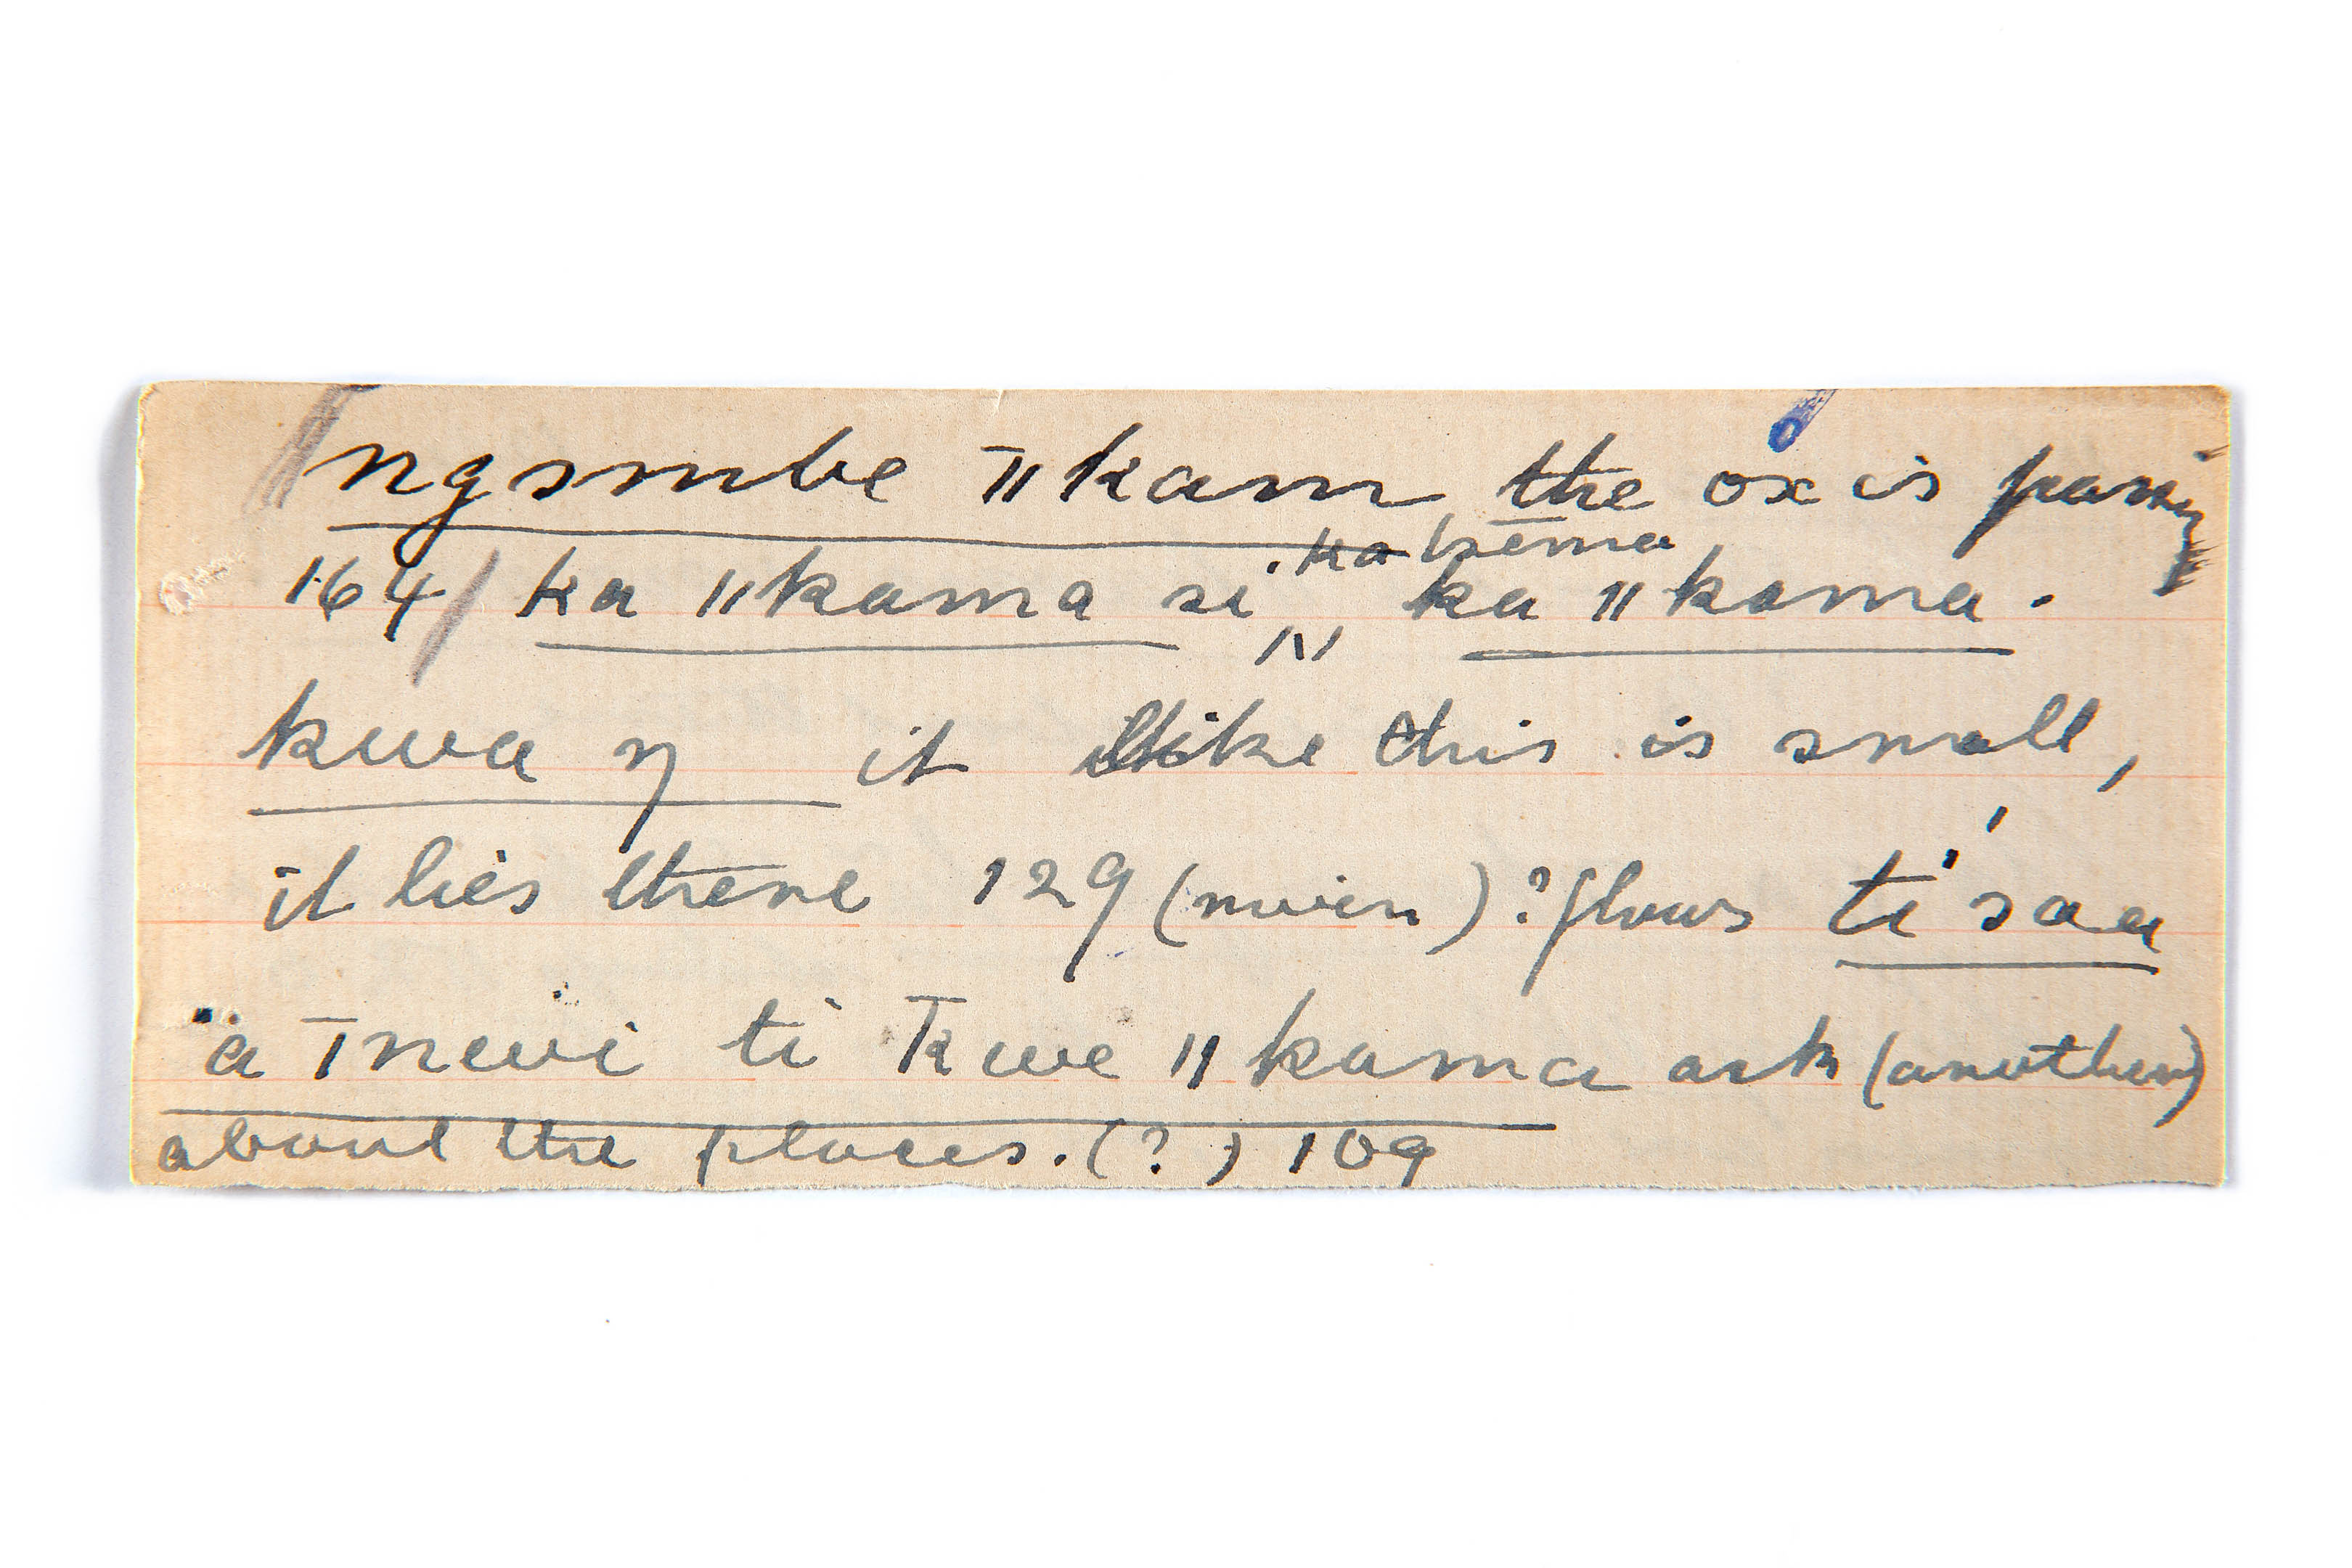 ngombe ̄ǁkam, the ox is passing
164/ ka ǁkama si . ka tsēma, ka ǁkama.
kwa ŋ it like this is small,
it lies there 129 (river) ? flows ti 'saa
"a ̄ǀnewi ti k̄we ǁkama ask (another)
about the places. (?) 109